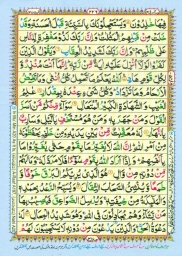 فِيهَا خٰلِدُوْنَ وَيَسْتَعْجِلُوْنَكَ بِالسَّيِّئَةِ قَبْلَ الْحَسَنَةِ وَقَدْ
خَلَتْ مِنْ قَبْلِهِمُ الْمَثُلٰتُ وَاِنَّ رَبَّكَ لَذُوْ مَغْفِرَةٍ لِّلنَّاسِ
عَلٰى ظُلْمِهِمْ وَاِنَّ رَبَّكَ لَشَدِيْدُ الْعِقَابِ وَيَقُوْلُ الَّذِيْنَ
كَفَرُوْا لَوْلَآ اُنْزِلَ عَلَيْهِ اٰيَةٌ مِّنْ رَّبِّهٖ اِنَّمَآ اَنْتَ مُنْذِرٌ وَّ
لِكُلِّ قَوْمٍ هَادٍ اَللّٰهُ يَعْلَمُ مَا تَحْمِلُ كُلُّ اُنْثٰى وَمَا تَغِيْضُ
الْاَرْحَامُ وَمَا تَزْدَادُ وَكُلُّ شَيْءٍ عِنْدَهٗ بِمِقْدَارٍ عٰلِمُ
الْغَيْبِ وَالشَّهَادَةِ الْكَبِيْرُ الْمُتَعَالِ سَوَآءٌ مِّنْكُمْ مَّنْ اَسَرَّ
الْقَوْلَ وَمَنْ جَهَرَ بِهٖ وَمَنْ هُوَ مُسْتَخْفٍۭ بِالَّيْلِ وَسَارِبٌۢ
بِالنَّهَارِ لَهٗ مُعَقِّبٰتٌ مِّنْۢ بَيْنِ يَدَيْهِ وَمِنْ خَلْفِهٖ يَحْفَظُوْنَهٗ
مِنْ اَمْرِ اللّٰهِ اِنَّ اللّٰهَ لَا يُغَيِّرُ مَا بِقَوْمٍ حَتّٰى يُغَيِّرُوْا مَا
بِاَنْفُسِهِمْ وَاِذَآ اَرَادَ اللّٰهُ بِقَوْمٍ سُوْٓءًا فَلَا مَرَدَّ لَهٗ وَمَا لَهُمْ
مِّنْ دُوْنِهٖ مِنْ وَّالٍ هُوَ الَّذِيْ يُرِيْكُمُ الْبَرْقَ خَوْفًا وَّ
طَمَعًا وَّيُنْشِئُ السَّحَابَ الثِّقَالَ وَيُسَبِّحُ الرَّعْدُ بِحَمْدِهٖ
وَالْمَلٰٓئِكَةُ مِنْ خِيْفَتِهٖ وَيُرْسِلُ الصَّوَاعِقَ فَيُصِيْبُ بِهَا
مَنْ يَّشَآءُ وَهُمْ يُجَادِلُوْنَ فِي اللّٰهِ وَهُوَ شَدِيْدُ الْمِحَالِ لَهٗ
دَعْوَةُ الْحَقِّ وَالَّذِيْنَ يَدْعُوْنَ مِنْ دُوْنِهٖ لَا يَسْتَجِيْبُوْنَ لَهُمْ